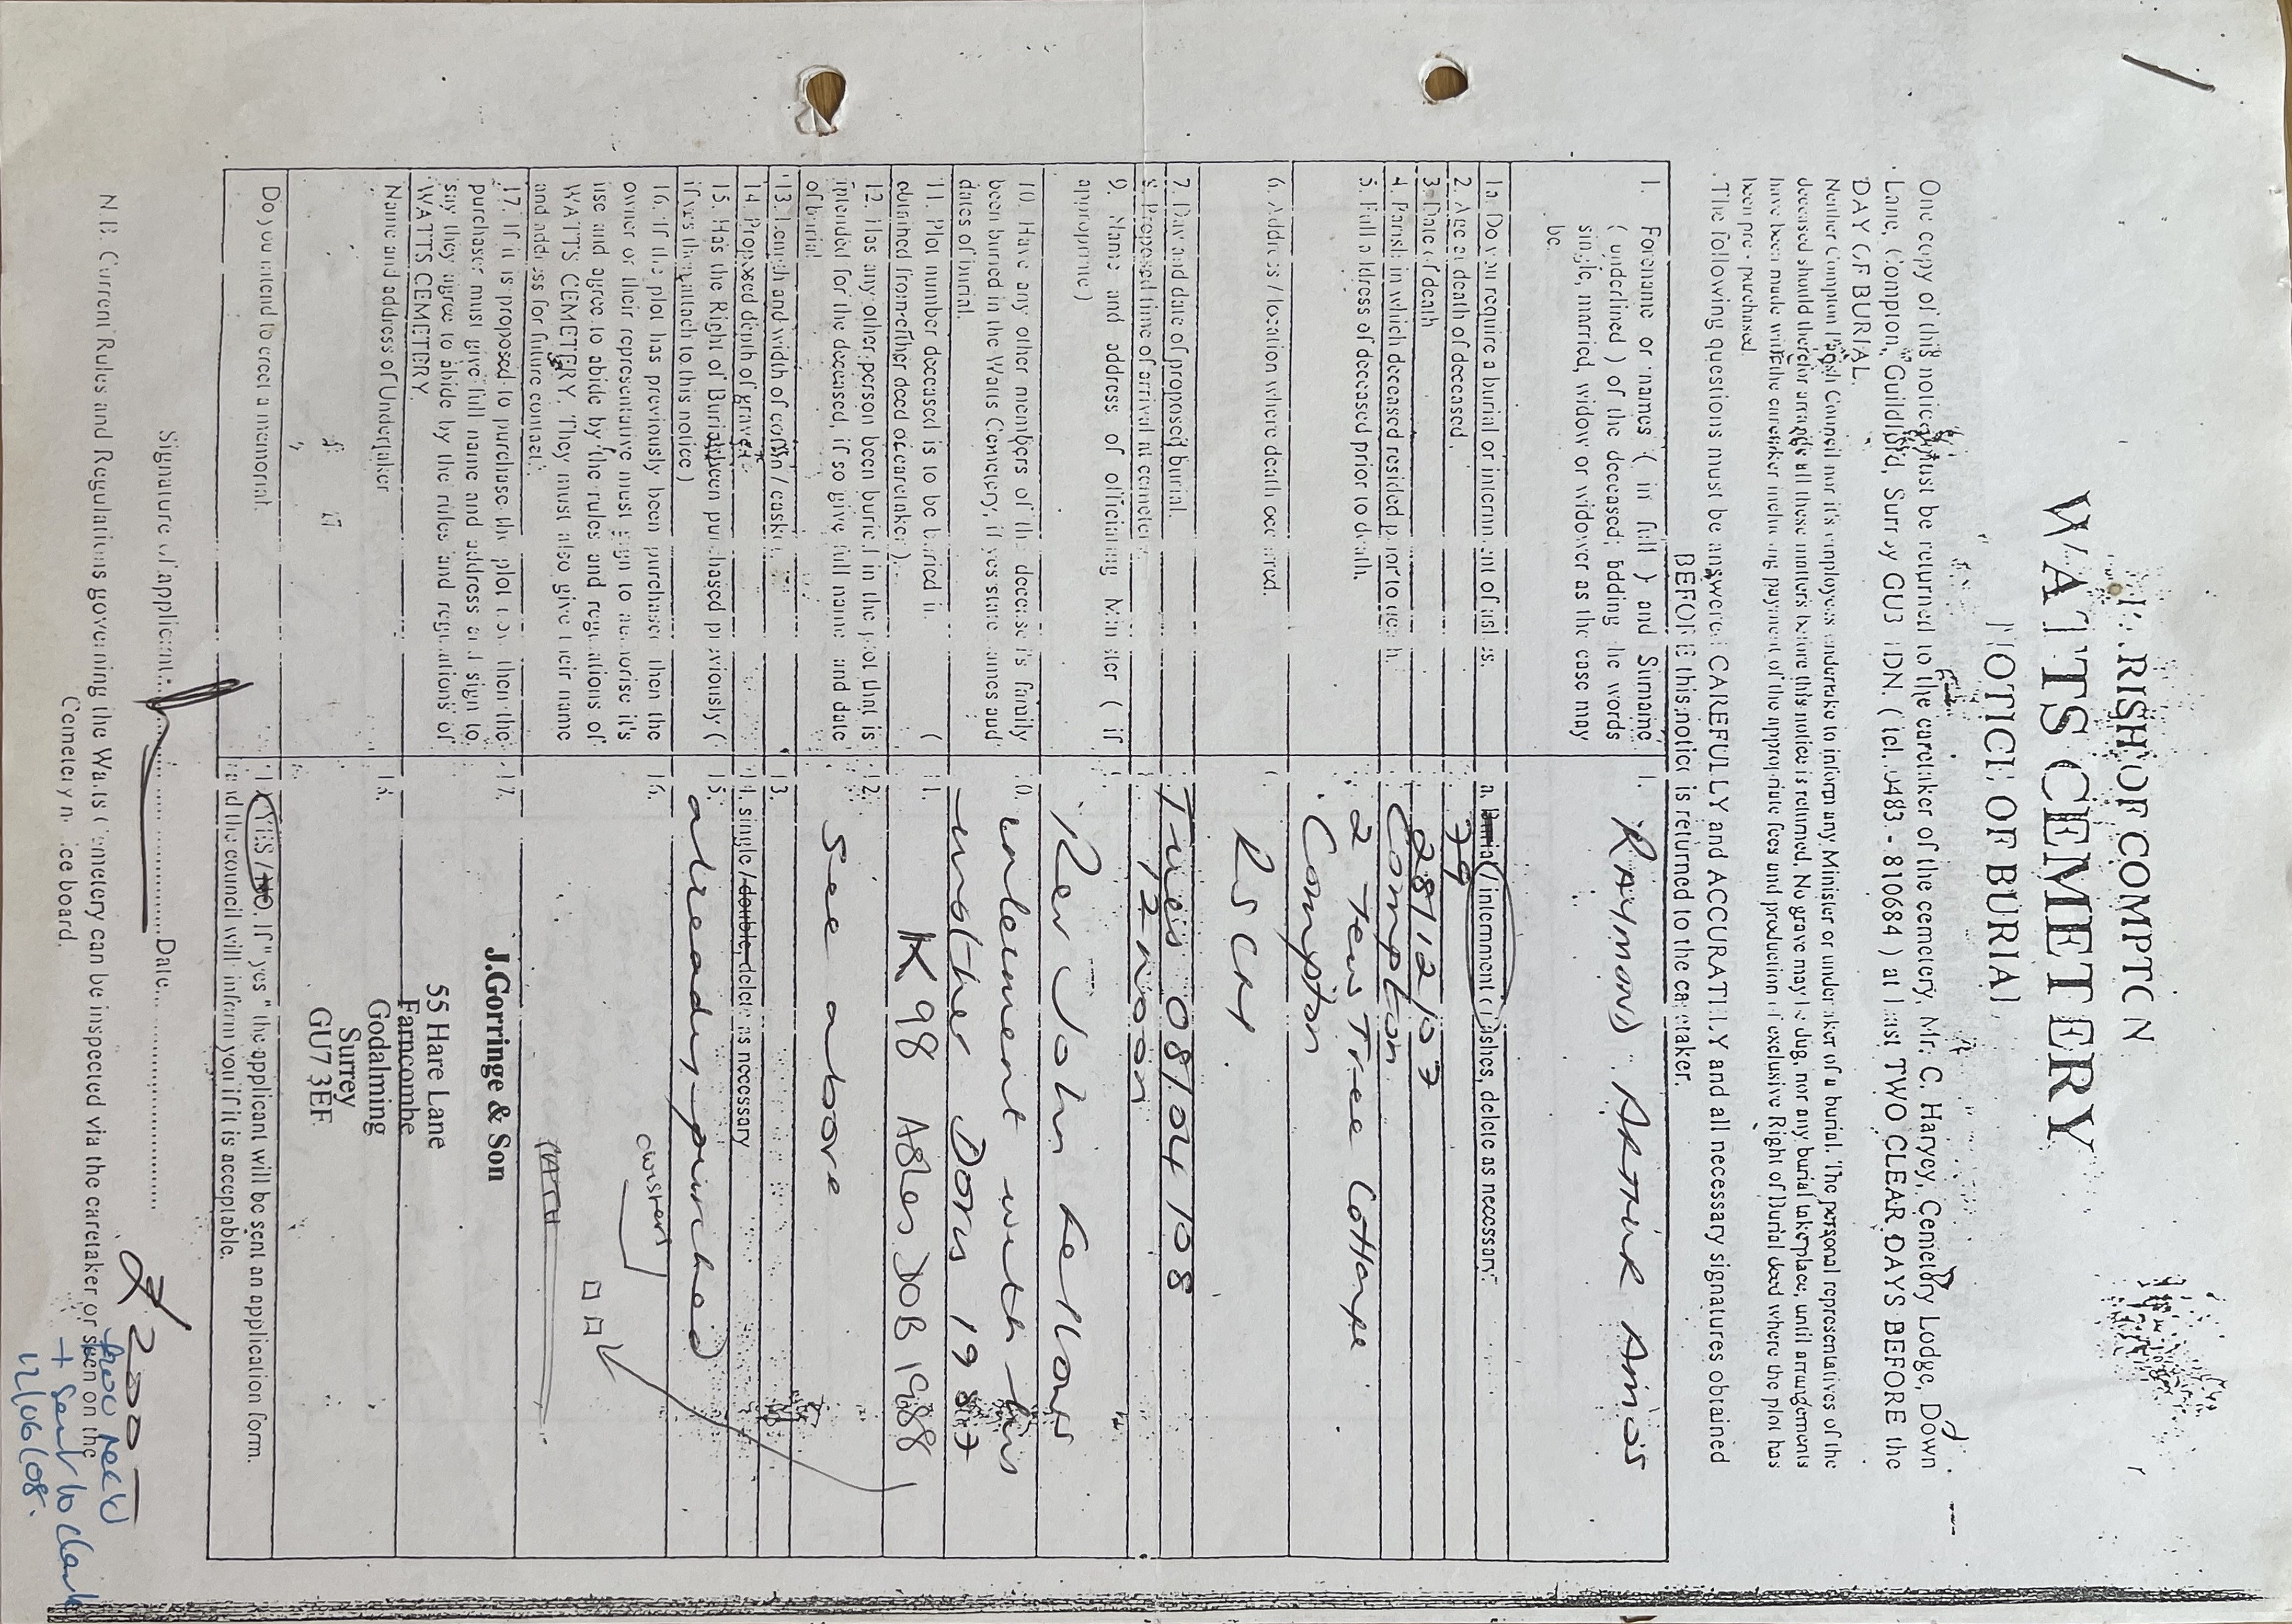 PARISH OF COMPTON
WATTS CEMETERY
NOTICE OF BURIAL
One copy of this notice must be returned to the caretaker of the cemetery, Mr. C. Harvey, Cemetery Lodge, Down
Lane, Compton, Guildford, Surrey GU3 1DN. ( tel. 0483 - 810684 ) at least TWO CLEAR DAYS BEFORE the
DAY OF BURIAL.
Neither Compton Parish Council nor it's employees undertake to inform any Minister or undertaker of a burial. The personal representatives of the
deceased should therefor arrange all these matters before this notice is returned. No grave may be dug, nor any burial take place, until arrangements
have been made with the caretaker including payment of the appropriate fees and production of exclusive Right of Burial deed where the plot has
been pre - purchased.
The following questions must be answered CAREFULLY and ACCURATELY and all necessary signatures obtained
BEFORE this notice is returned to the caretaker.
1. Forename or names ( in full ) and Surname
( underlined ) of the deceased, adding the words
single, married, widow or widower as the case may
be.
1. RAYMOND ARTHUR AMOS
1a. Do you require a burial or internment of ashes.
a. Burial / internment of ashes, delete as necessary.
2. Age at death of deceased.
79
3. Date of death
28/12/07
4. Parish in which deceased resided prior to death.
Compton
5. Full address of deceased prior to death.
2 Yew Tree Cottage
Compton
6. Address / location where death occurred.
RSCH
7. Day and date of proposed burial.
Tues 08/04/08
8. Proposed time of arrival at cemetery.
12 noon
9. Name and address of officiating Minister ( if
appropriate )
Rev John Fellows
10. Have any other members of the deceased's family
been buried in the Watts Cemetery, if yes state names and
dates of burial.
10. interment with his
mother Doris 1987
11. Plot number deceased is to be buried in. (
obtained from either deed or caretaker ).
11. K98 Ashes DOB 1988
12. Has any other person been buried in the plot that is
intended for the deceased, if so give full name and date
of burial
12. see above
13. Length and width of coffin / casket.
13.
14. Proposed depth of grave.
14. single / double, delete as necessary
15. Has the Right of Burial been purchased previously (
if yes then attach to this notice )
15. already purchased
16. If the plot has previously been purchased then the
owner or their representative must sign to authorise it's
use and agree to abide by the rules and regulations of
WATTS CEMETERY. They must also give their name
and address for future contact.
16.
17. If it is proposed to purchase the plot now then the
purchaser must give full name and address and sign to
say they agree to abide by the rules and regulations of
WATTS CEMETERY.
17.
Name and address of Undertaker
18.
J.Gorringe & Son
55 Hare Lane
Farncombe
Godalming
Surrey
GU7 3EF
Do you intend to erect a memorial.
YES / NO. If " yes " the applicant will be sent an application form.
and the council will inform you if it is acceptable.
Signature of applicant: Date
£200—
N.B. Current Rules and Regulations governing the Watts Cemetery can be inspected via the caretaker or seen on the
Cemetery notice board.
£200 rec'd
+ sent to Clerk
12/06/08.